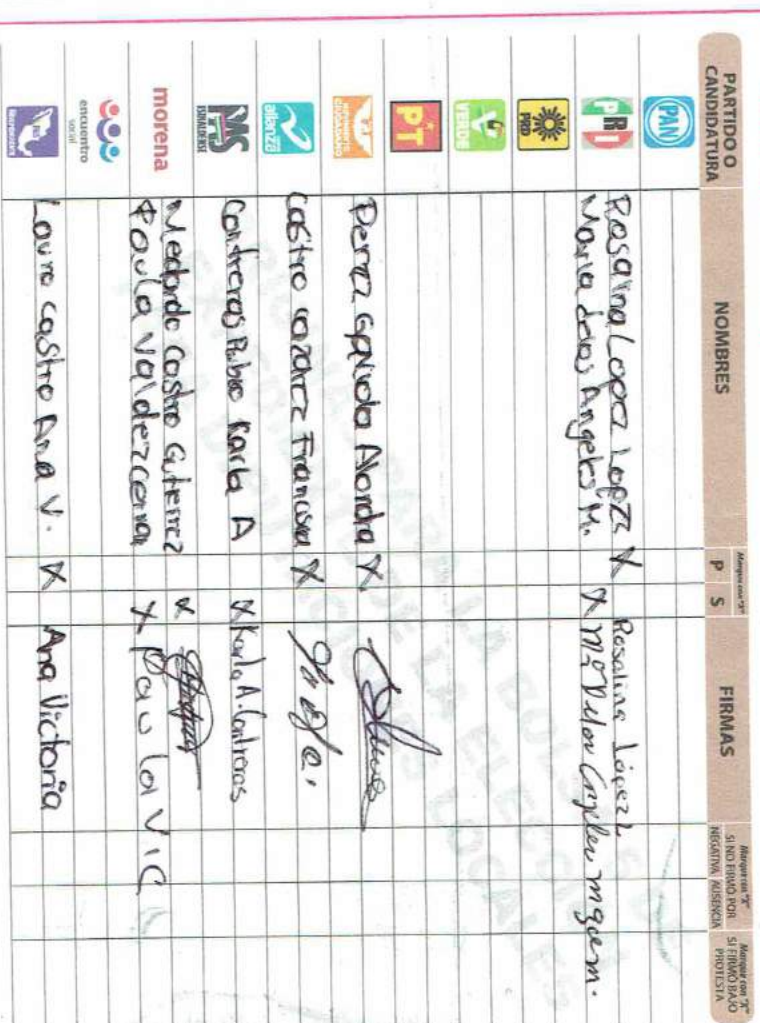 PARTIDO O CANDIDATURA
NOMBRES
Marque con "X"
P S
FIRMAS
Marque con "X" SI NO FIRMÓ POR
NEGATIVA AUSENCIA
Marque con "X" SI FIRMÓ BAJO PROTESTA
PAN
PRI
Rosalina Lopez Lopez X Rosalina López L
Maria de los Angeles M. X
PRD
VERDE
PT
MOVIMIENTO CIUDADANO
Perez Gaviola Alondra X
alianza
Castro Francisca X
PAS
SINALOENSE
Contreras Rubio Karla A X Karla A. Contreras
morena
Medardo Castro Gutierrez X
Paula Valdez X Paula V C
encuentro social
Laura Castro Ana V. X Ana Victoria
PARA LA BOLSA
DE LA ELECCIÓN
LOCALES